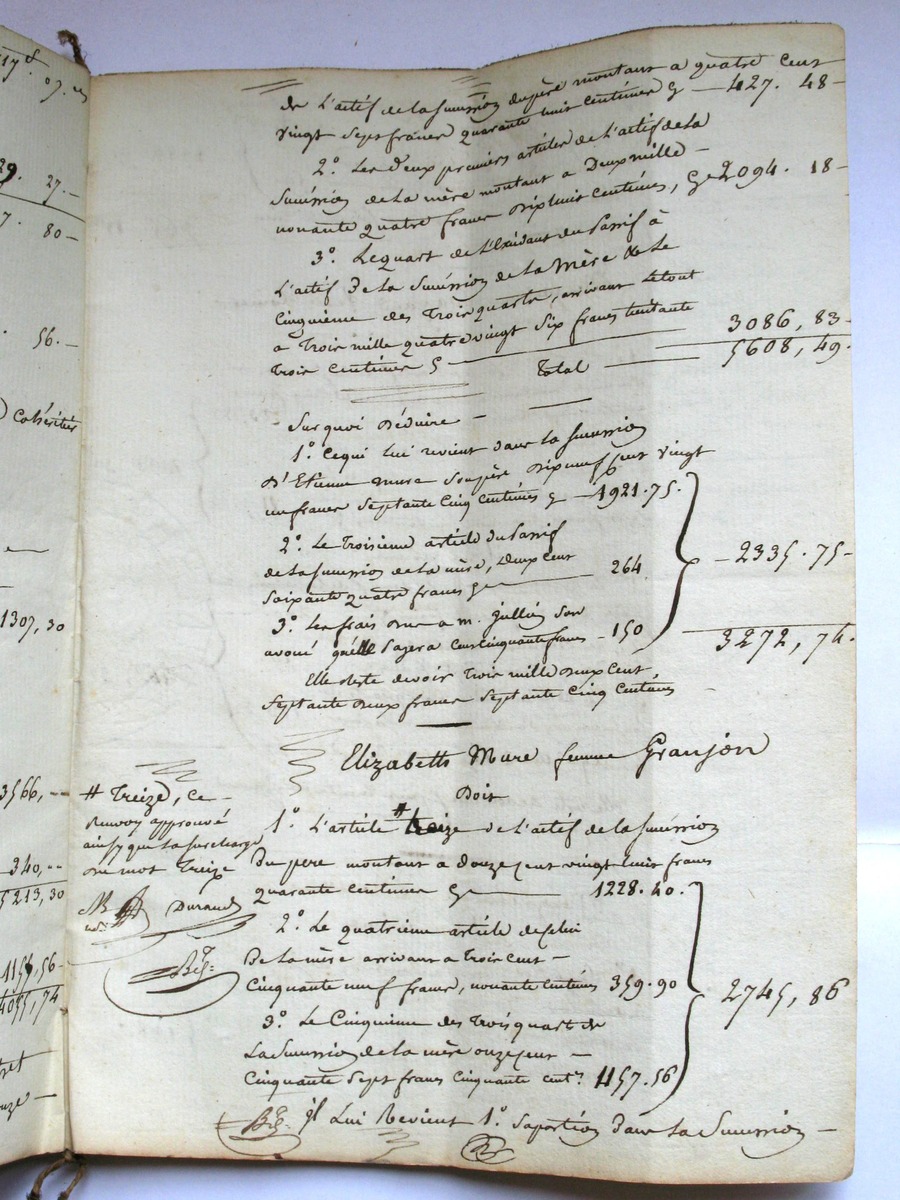 17 s 07.
29. 27.—
7. 80—
56.—
Cohéritier
1307,30
3566,--
340,--
5213,30
1154,56-
4055,74
de L'actif de la Succession du père montant a quatre Cent
vingt Sept francs quarante huit Centimes Cy — 427. 48—
2.° Les Deux premiers articles de L'actif de la
Succession de la mère montant a Deux mille —
nonante quatre francs Dix huit Centimes, Cy 2094. 18—
3.° Le quart de L'Exédant du Passif à
L'actif De la Succession de La Mère & Le
Cinquième des Trois quarts, arrivant Le tout
a Trois mille quatre vingt Six francs huitante
Trois Centimes Cy — 3086, 83—
Total — 5608, 49.
Sur quoi Déduire —
1.° Ce qui Lui revient dans La Succession
D'Etienne Mure Son père Dix neuf Cent vingt
un francs Septante Cinq Centimes Cy — 1921.75.
2.° Le Troisième article du Passif
de La Succession de La mère, Deux Cent
Soixante quatre francs Cy — 264
3.° Les frais Due a m. Jullien Son
avoué qu'elle Payera Cent Cinquante francs — 150
— 2335. 75—
3272, 74.
Elle Reste devoir Trois mille Deux Cent
Septante Deux francs Septante Cinq Centimes
Elizabeth Mure femme Granjon
Doit
1.° L'article # treize de L'actif de La Succession
Du pere montant a Douze Cent vingt huit francs
quarante Centimes Cy — 1228.40.
2.° Le quatrieme article de Celui
De La mère arrivant a Trois Cent —
Cinquante neuf francs, nonante Centimes 359.90
3.° Le Cinquieme des Trois quart de
La Succession de La mère onze Cent —
Cinquante Sept francs Cinquante Centes 1157.56
2745, 86
Il Lui Revient 1.° Sa portion Dans La Succession —
# Treize, Ce
Renvoy approuvé
ainsy que La Surcharge
du mot Treize
Durand